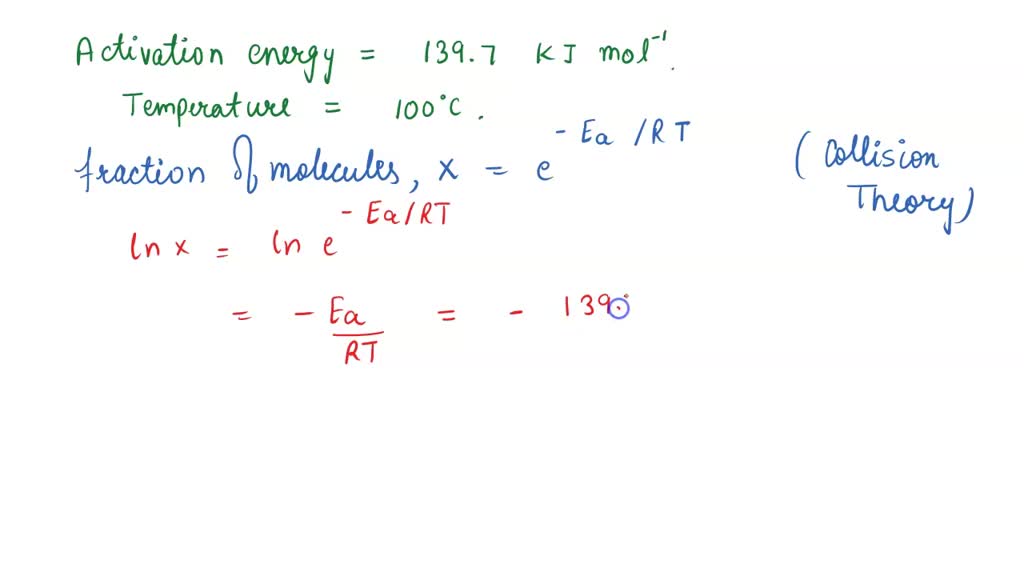 Activation energy = 139.7 KJ mol⁻¹.
Temperature = 100°C.
fraction of molecules, x = e^(-Ea/RT) (Collision Theory)
ln x = ln e^(-Ea/RT)
= -Ea/RT = - 139.